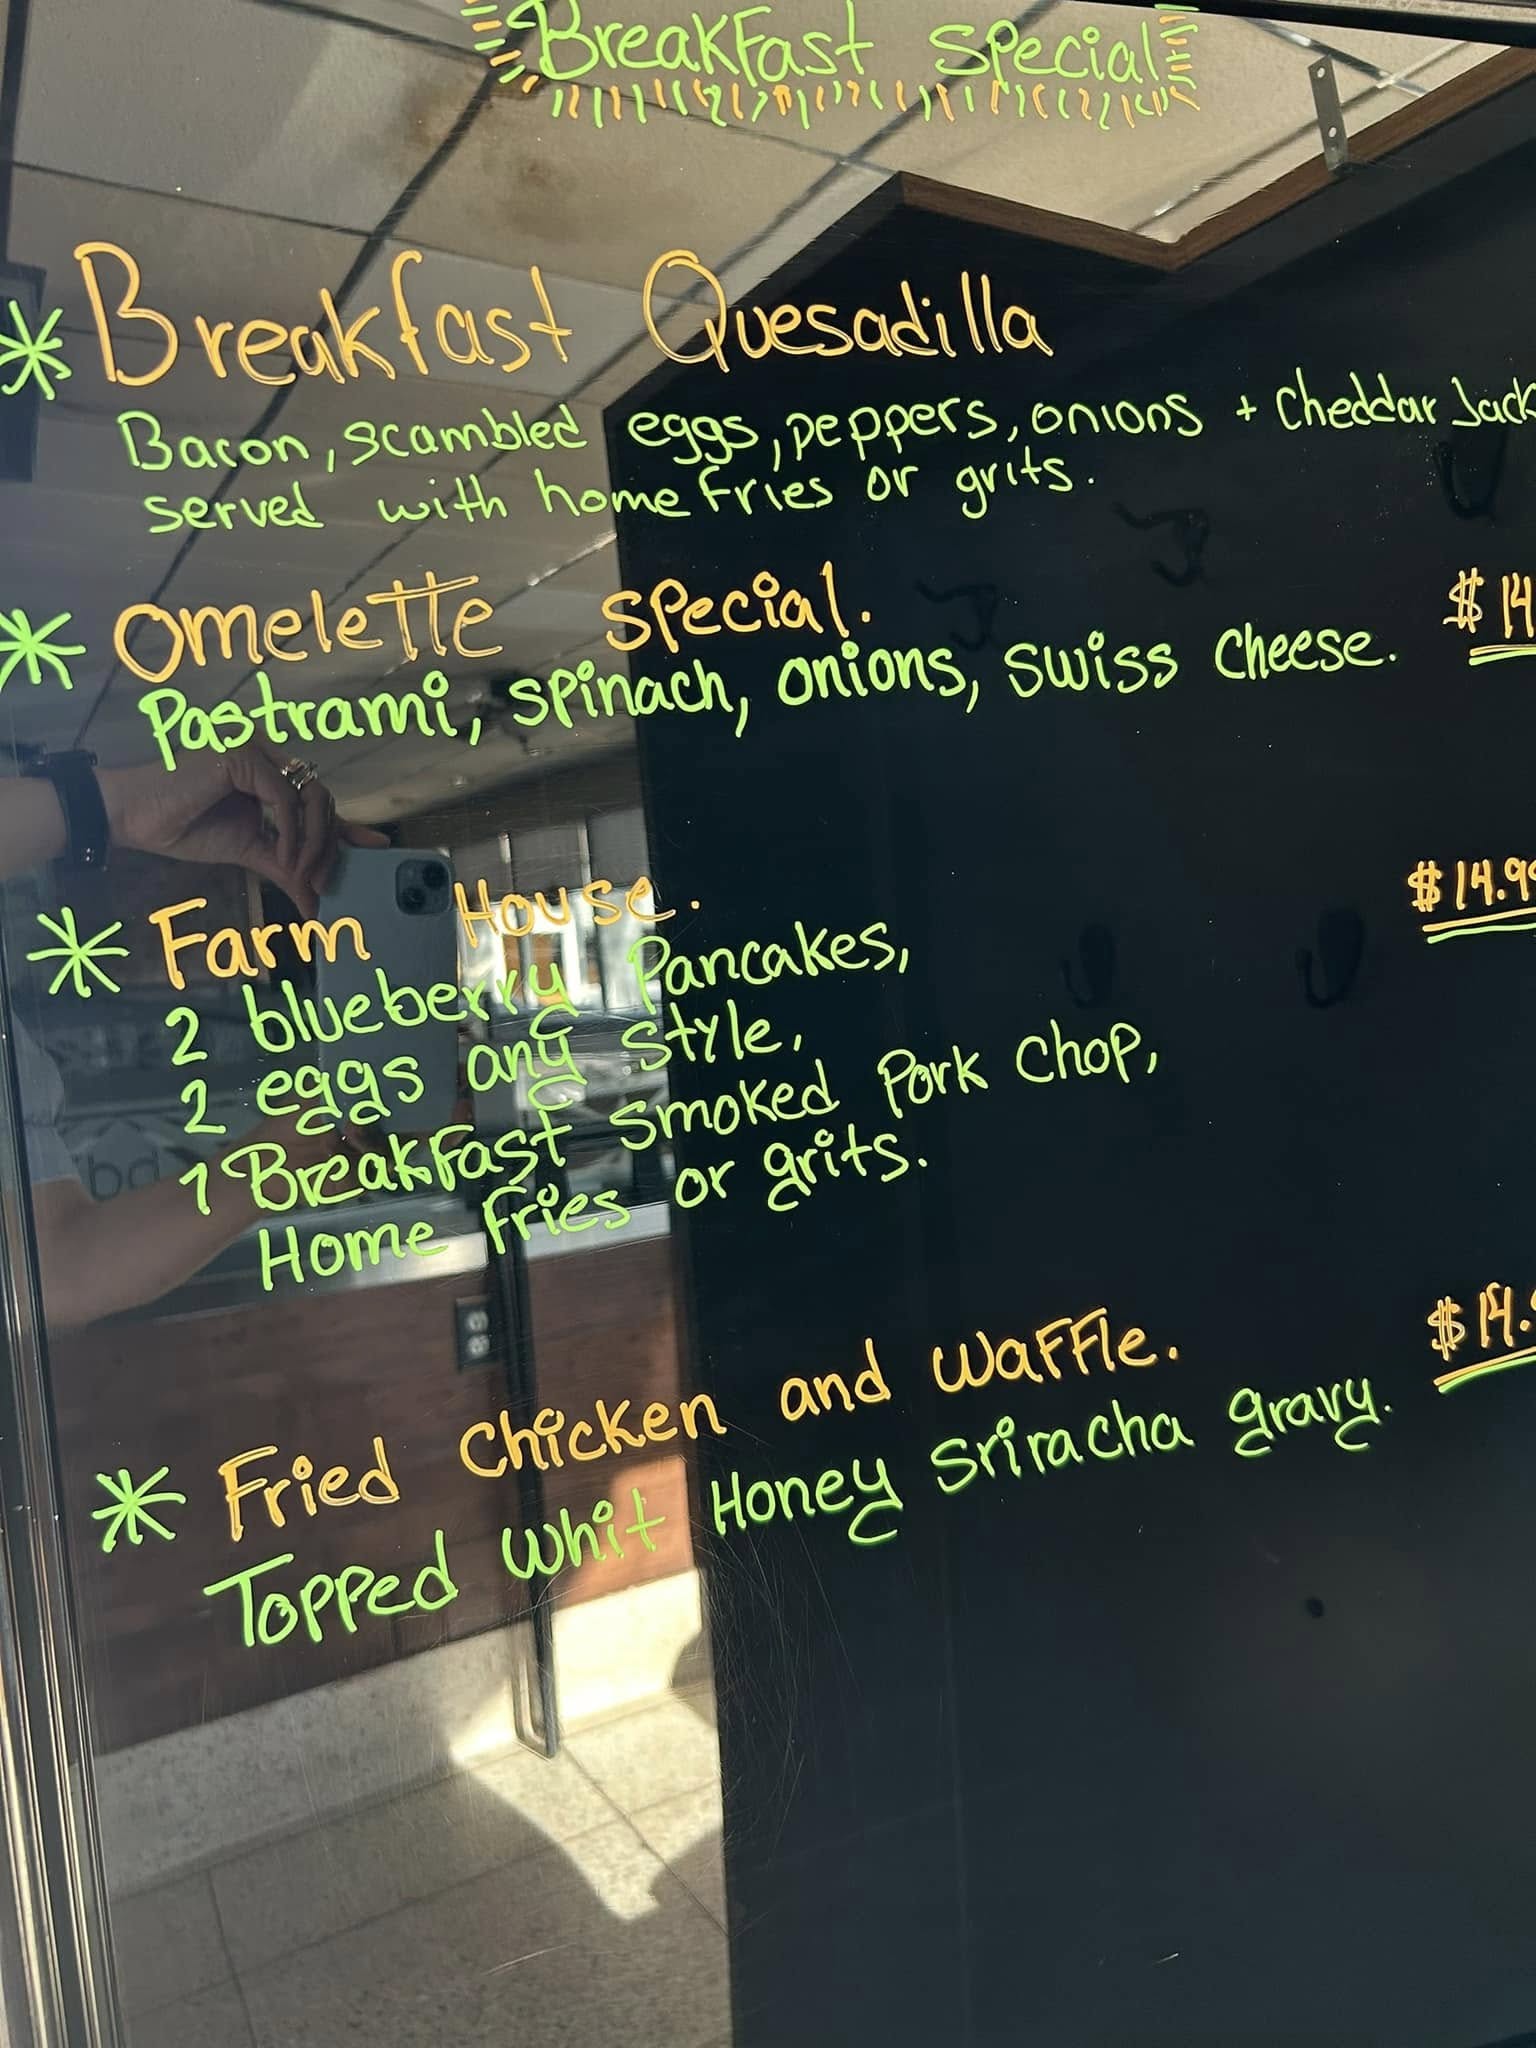 Breakfast special
* Breakfast Quesadilla
Bacon, scambled eggs, peppers, onions + cheddar Jack
served with home fries or grits.
* Omelette special. $14
Pastrami, spinach, onions, swiss cheese.
* Farm House. $14.99
2 blueberry Pancakes,
2 eggs any style,
1 Breakfast smoked Pork chop,
Home fries or grits.
* Fried Chicken and waffle. $14.
Topped whit Honey sriracha gravy.